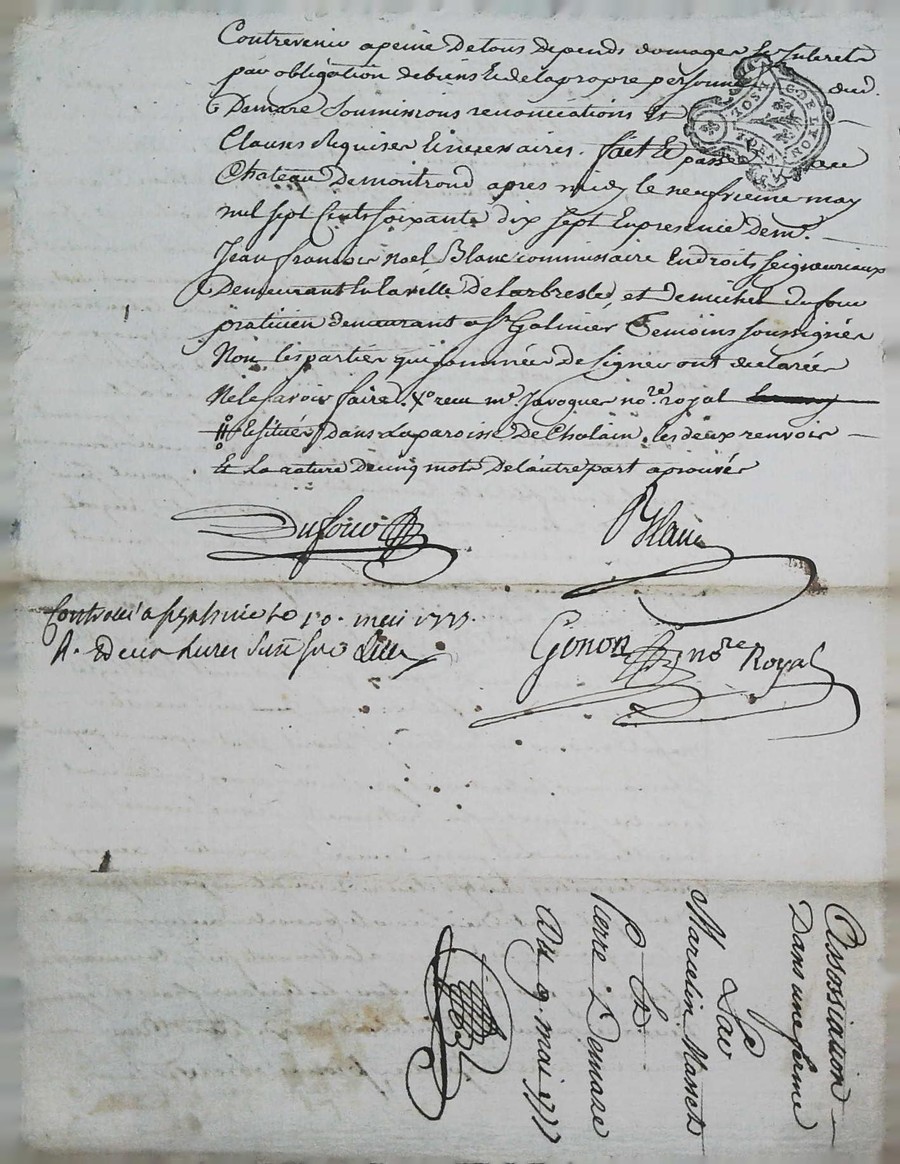 Contrevenir a peine De tous depends domages Et Interets
par obligation de biens Et de la propre personne dud.
Demare Soumissions renonciations Et
Clauses Requises Et necessaires. fait Et passé au
Chateau De montrond apres midy le neufvieme may
mil sept Cents soixante dix sept En presence De mr.
Jean françois noel Blanc commissaire En droits seigneuriaux
Demeurant En la ville De Larbresle, et de michel dufour
praticien demeurant a St Galmier Temoins soussignés
Non les parties qui sommées de signer ont declarées
Ne le savoir faire. recu me. Javogues nore. royal
Et situés Dans La paroisse De Chalain, les deux renvois
Et La rature De cinq mots De lautre part aprouvés
Dufour
Blanc
Controllé a le 10. mai 1777.
R.
Gonon nore Royal
Assossiasion
Dans une ferme
Par
Marcelin Massets
Et
Pierre Demare
Du 9. mai 1777